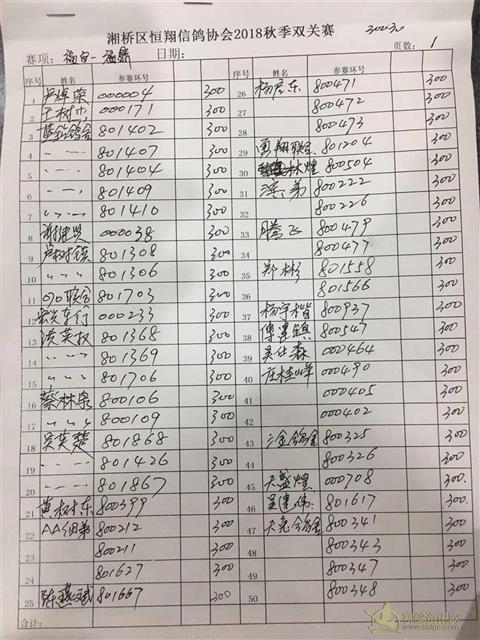 湘桥区恒翔信鸽协会2018秋季双关赛 300元
赛项: 福安—福鼎 日期: 页数: 1
序号 姓名 参赛环号 序号 姓名 参赛环号
1 000004 300 26 800471 300
2 000171 300 27 800472 300
3 801402 300 28 800473 300
4 〃 — 〃 801407 300 29 翔联合 801204 300
5 〃 — 〃 801404 300 30 林煌 800504 300
6 〃 — 〃 801409 300 31 800222 300
7 〃 — 〃 801410 300 32 800226 300
8 000038 300 33 腾飞 800479 300
9 801308 300 34 800477 300
10 〃 〃 〃 801306 300 35 郑彬 801558 300
11 090联合 801703 300 36 801566 300
12 车行 000233 300 37 杨宇楷 800937 300
13 洪英权 801368 300 38 800547 300
14 〃 — 〃 801369 300 39 000464 300
15 〃 〃 〃 801706 300 40 000490 300
16 蔡林泉 800106 300 41 000405 300
17 〃 〃 〃 800109 300 42 000402 300
18 801868 300 43 三金鸽舍 800325 300
19 〃 — 〃 801426 300 44 800326 300
20 〃 — 〃 801867 300 45 天盛煌 000708 300
21 黄树东 800399 300 46 801617 300
22 AA细弟 800212 300 47 天亮鸽舍 800341 300
23 800211 300 48 800343 300
24 801627 300 49 800347 300
25 陈燕斌 801667 300 50 800348 300
合计: